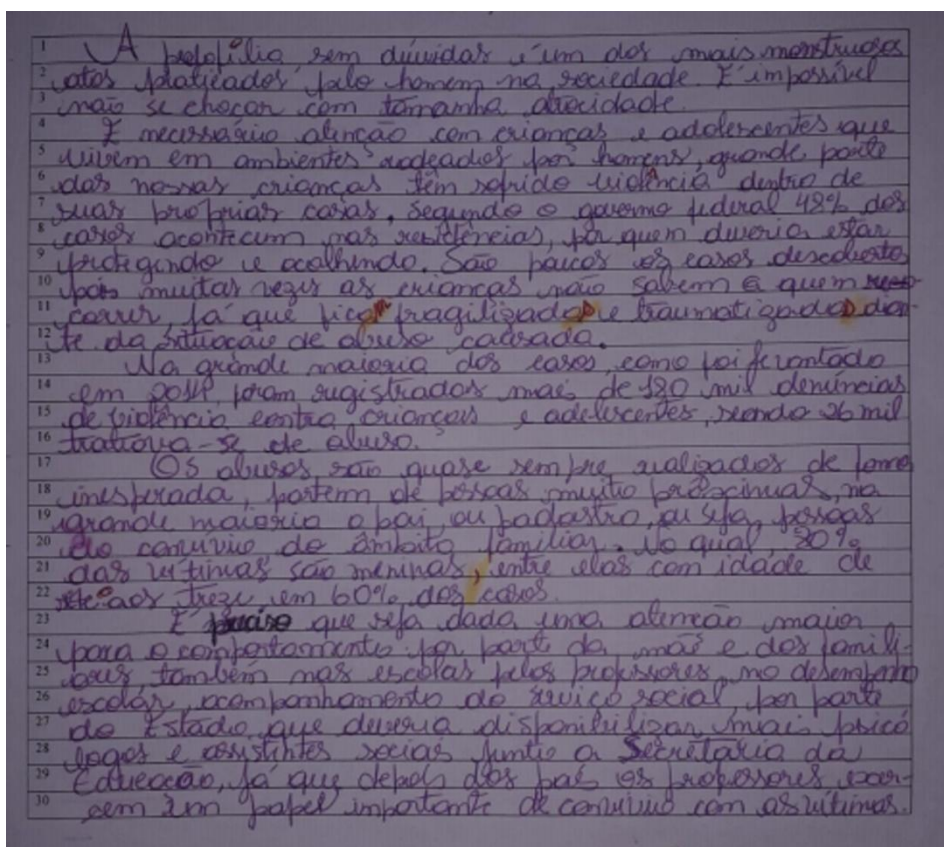 1 A pedofilia, sem dúvidas é um dos mais monstruosos
2 atos praticados pelo homem na sociedade. É impossível
3 não se chocar com tamanha atrocidade.
4 É necessário atenção com crianças e adolescentes que
5 vivem em ambientes rodeados por homens, grande parte
6 das nossas crianças têm sofrido violência dentro de
7 suas próprias casas. Segundo o governo federal 48% dos
8 casos acontecem nas residências, por quem deveria estar
9 protegendo e acolhendo. São poucos os casos descobertos
10 pois muitas vezes as crianças não sabem a quem
11 correr, já que ficam fragilizados e traumatizados dian-
12 te da situação de abuso causada.
13 Na grande maioria dos casos, como foi levantado
14 em foram registrados mais de 120 mil denúncias
15 de violência contra crianças e adolescentes, sendo 26 mil
16 tratava-se de abuso.
17 Os abusos são quase sempre realizados de forma
18 inesperada, partem de pessoas muito na
19 grande maioria o pai, ou padastro, ou seja, pessoas
20 do convívio do âmbito familiar. No qual, 80%
21 das vítimas são meninas, entre elas com idade de
22 sete aos treze em 60% dos casos.
23 É preciso que seja dada uma atenção maior
24 para o comportamento por parte da mãe e dos famili-
25 ares também nas escolas pelos professores, no desempenho
26 escolar, acompanhamento do serviço social por parte
27 do Estado que deveria disponibilizar mais psicó
28 logos e assistentes sociais junto a Secretaria da
29 Educação, já que depois dos pais os professores exer-
30 cem um papel importante de convívio com as vítimas.